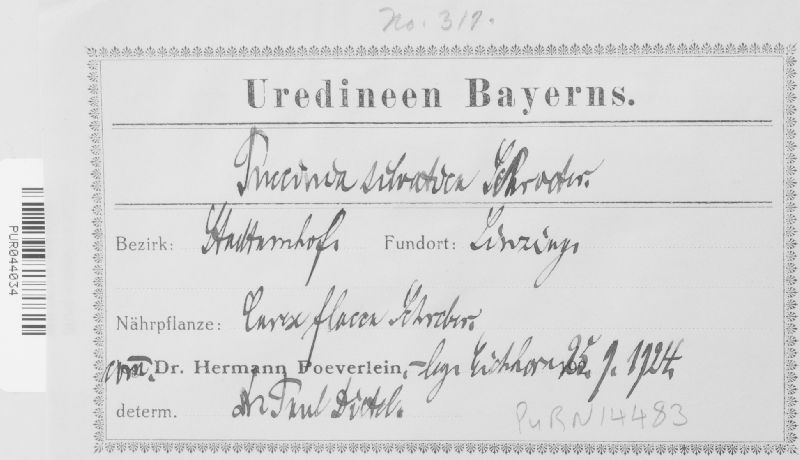 No. 317.
Uredineen Bayerns.
Puccinia silvatica Schroeter.
Bezirk: Stadtamhof. Fundort:
Nährpflanze: Carex flacca Schreber.
com. Dr. Hermann Poeverlein. – leg. 25. 9. 1924.
determ. Dr Paul Dietel.
PURN14483
PUR044034